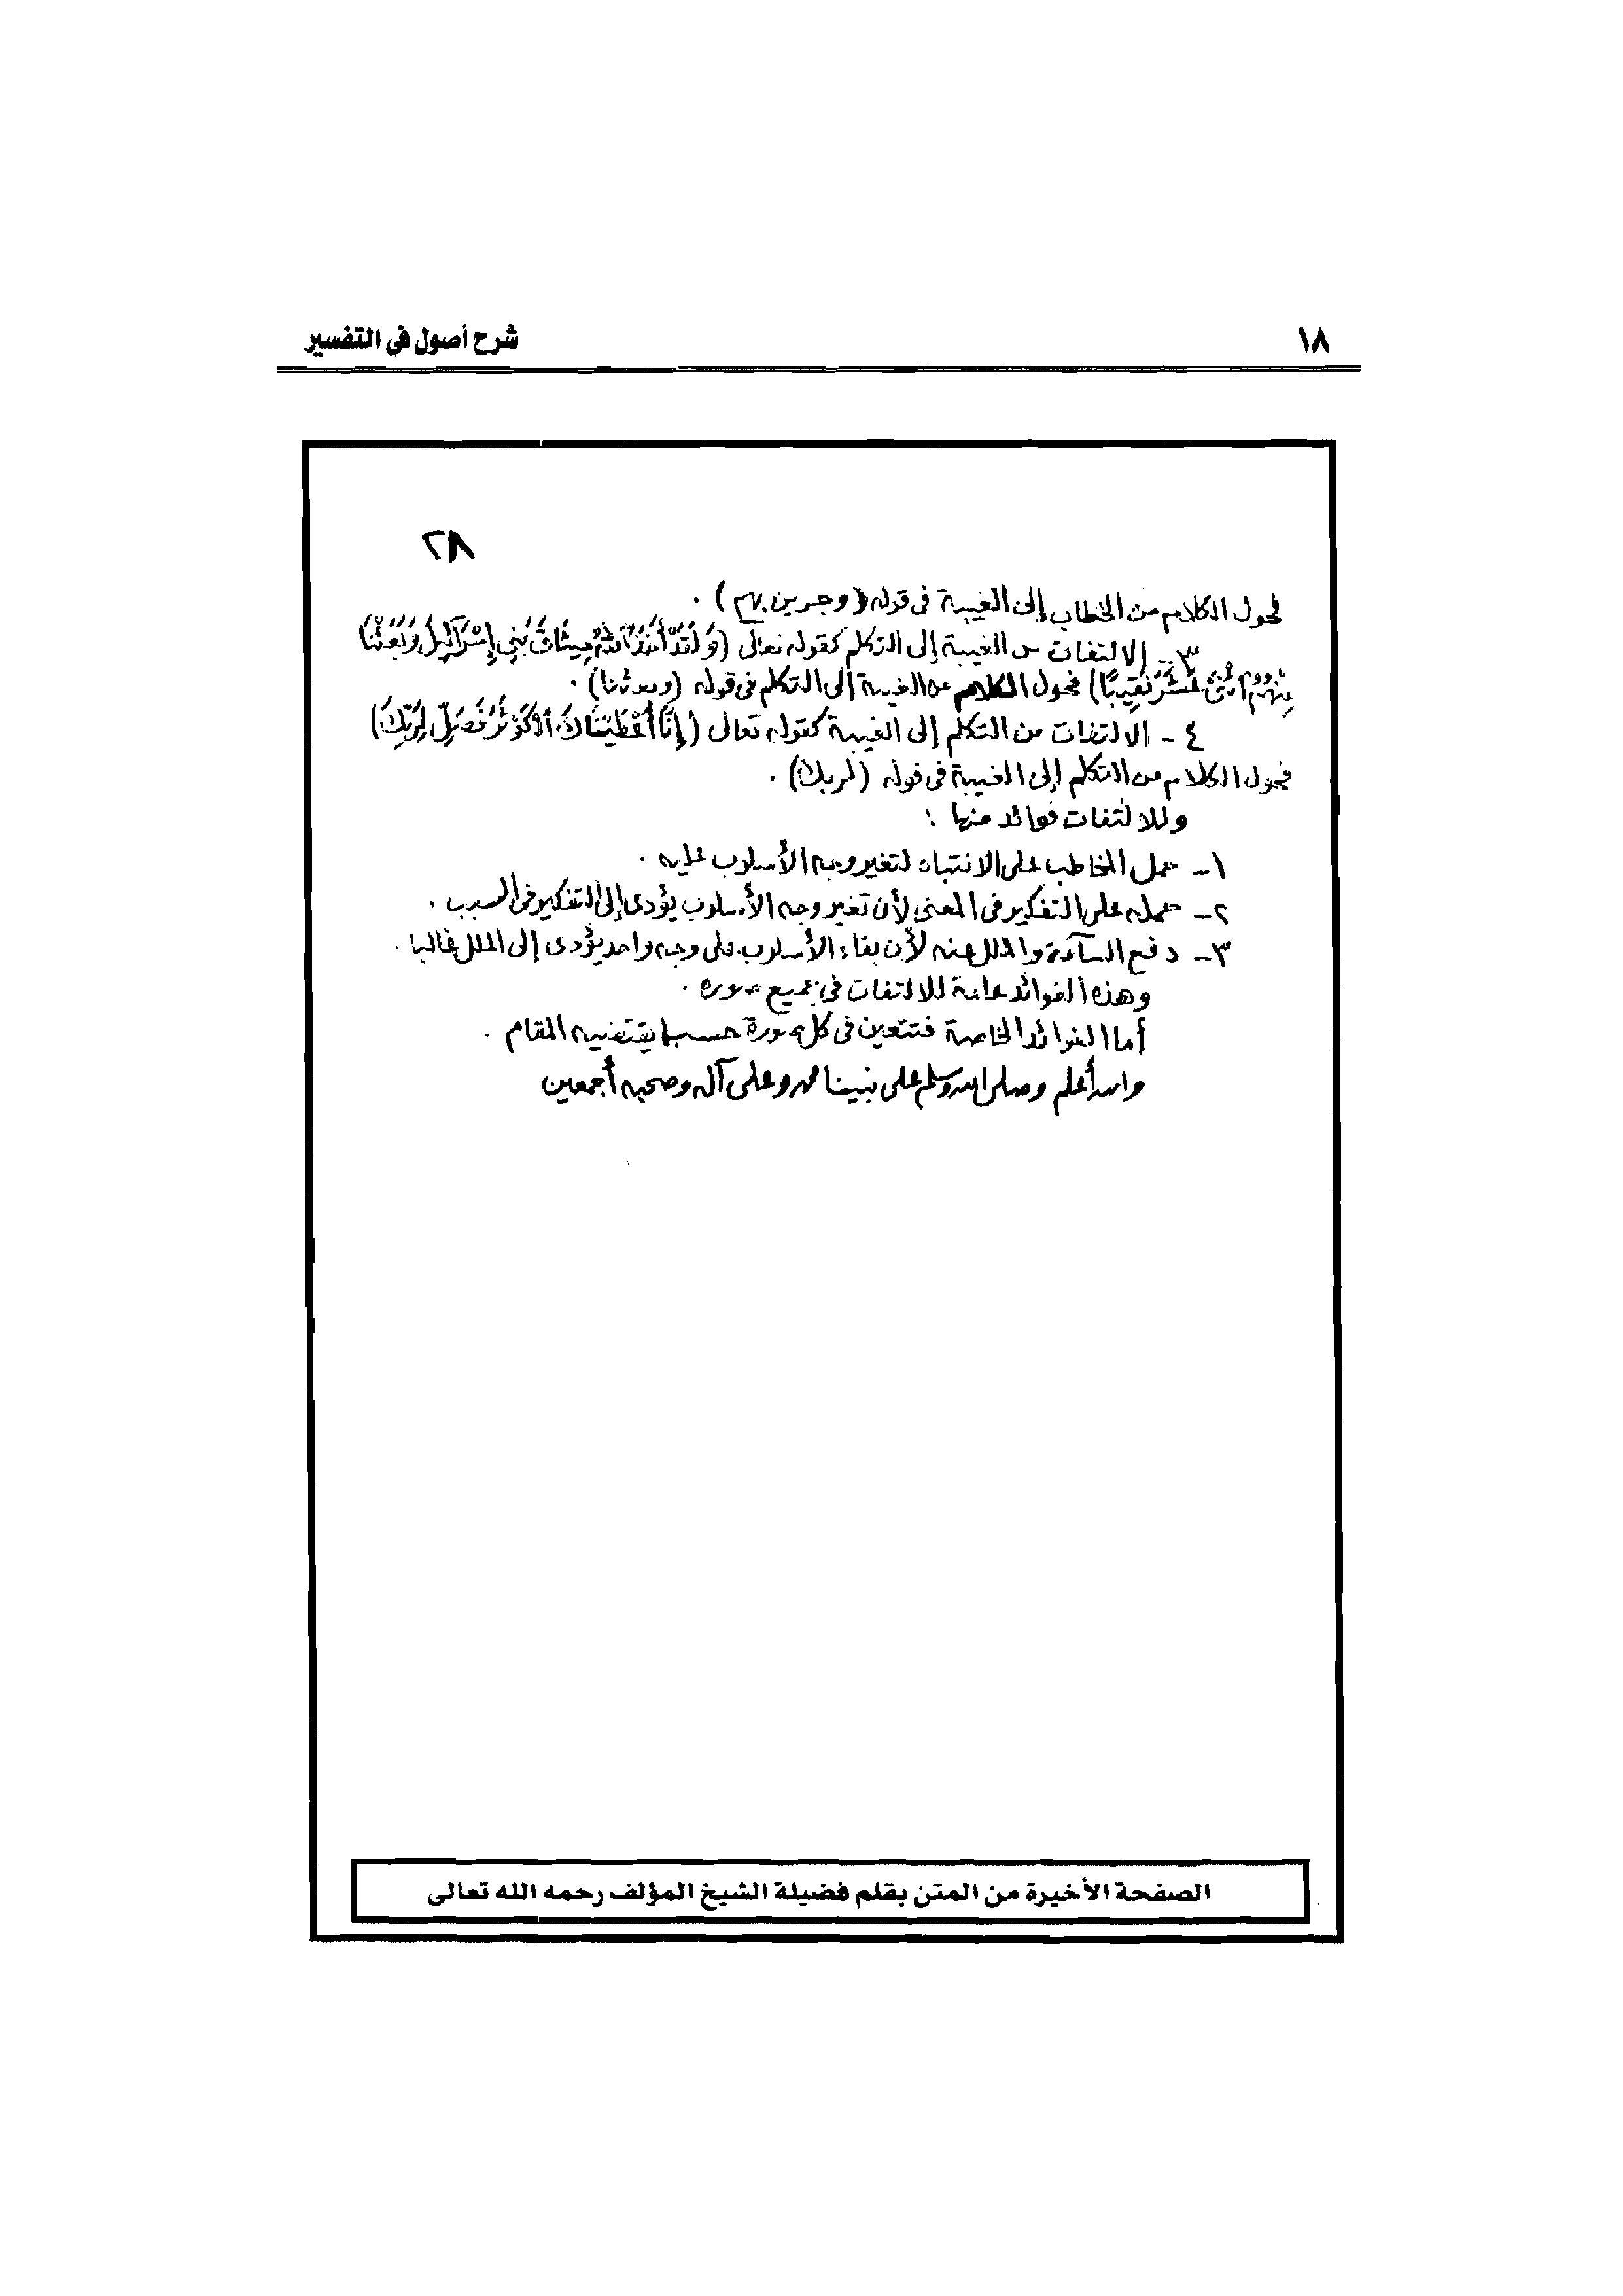 ١٨
شرح أصول في التفسير
٢٨
فحول الكلام من الخطاب إلى الغيبة في قوله (وجرين بهم) .
٣ - الالتفات من الغيبة إلى التكلم كقوله تعالى (وَلَقَدْ أَخَذَ اللَّهُ مِيثَاقَ بَنِي إِسْرَآئِيلَ وَبَعَثْنَا
مِنْهُمُ اثْنَيْ عَشَرَ نَقِيبًا) فحول الكلام من الغيبة إلى التكلم في قوله (وبعثنا) .
٤ - الالتفات من التكلم إلى الغيبة كقوله تعالى (إِنَّا أَعْطَيْنَاكَ الْكَوْثَرَ فَصَلِّ لِرَبِّكَ)
فحول الكلام من التكلم إلى الغيبة في قوله (لربك) .
وللالتفات فوائد منها :
١ - حمل المخاطب على الانتباه لتغير وجه الأسلوب عليه .
٢ - حمله على التفكير في المعنى لأن تغير وجه الأسلوب يؤدى إلى التفكير في السبب .
٣ - دفع السآمة والملل عنه لأن بقاء الأسلوب على وجه واحد يؤدى إلى الملل غالبا .
وهذه الفوائد عامة للالتفات في جميع صوره .
أما الفوائد الخاصة فتتعين في كل صورة حسب ما يقتضيه المقام .
والله أعلم وصلى الله وسلم على نبينا محمد وعلى آله وصحبه أجمعين
الصفحة الأخيرة من المتن بقلم فضيلة الشيخ المؤلف رحمه الله تعالى